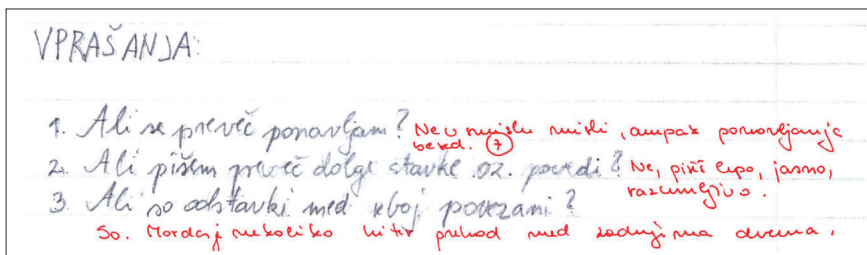 VPRAŠANJA:
1. Ali se preveč ponavljam? Ne v smislu misli, ampak ponavljanja
besed. 7
2. Ali pišem preveč dolge stavke oz. povedi? Ne, pišeš lepo, jasno,
razumljivo.
3. Ali so odstavki med seboj povezani?
So. Morda je nekoliko hiter prehod med zadnjima dvema.